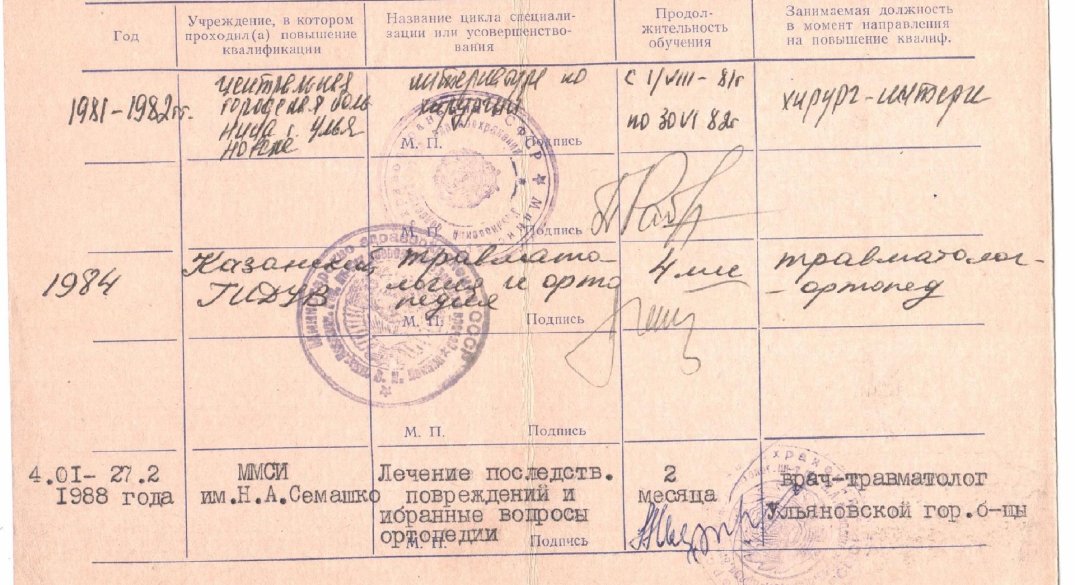 Год
Учреждение, в котором
проходил(а) повышение
квалификации
Название цикла специали-
зации или усовершенство-
вания
Продол-
жительность
обучения
Занимаемая должность
в момент направления
на повышение квалиф.
1981-1982гг.
центральная
городская боль
ница г. Улья
новска
интернатура по
хирургии
М. П. Подпись
с 1/VIII-81г
по 30 VI 82г
хирург-интерн
М. П. Подпись
1984
Казанский
ГИДУВ
травмато-
логия и орто
педия
М. П. Подпись
4 мес
травматолог-
-ортопед
М. П. Подпись
4.01- 27.2
1988 года
ММСИ
им.Н.А.Семашко
Лечение последств.
повреждений и
ибранные вопросы
ортопедии
М. П. Подпись
2
месяца
врач-травматолог
Ульяновской гор.б-цы